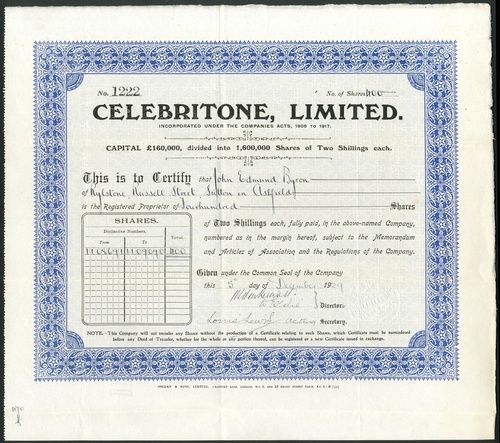 No. 1222 No. of Shares 400
CELEBRITONE, LIMITED.
INCORPORATED UNDER THE COMPANIES ACTS, 1908 TO 1917.
CAPITAL £160,000, divided into 1,600,000 Shares of Two Shillings each.
This is to Certify that John Edmund Byrom
of Kylstone, Russell Street, Sutton in Ashfield
is the Registered Proprietor of Four hundred Shares
of Two Shillings each, fully paid, in the above-named Company,
numbered as in the margin hereof, subject to the Memorandum
and Articles of Association and the Regulations of the Company.
SHARES.
Distinctive Numbers.
From To Total.
1108691 1109090 400
Given under the Common Seal of the Company
this 5th day of December 1929
Director.
Secretary.
NOTE.—This Company will not transfer any Shares without the production of a Certificate relating to such Shares, which Certificate must be surrendered
before any Deed of Transfer, whether for the whole or any portion thereof, can be registered or a new Certificate issued in exchange.